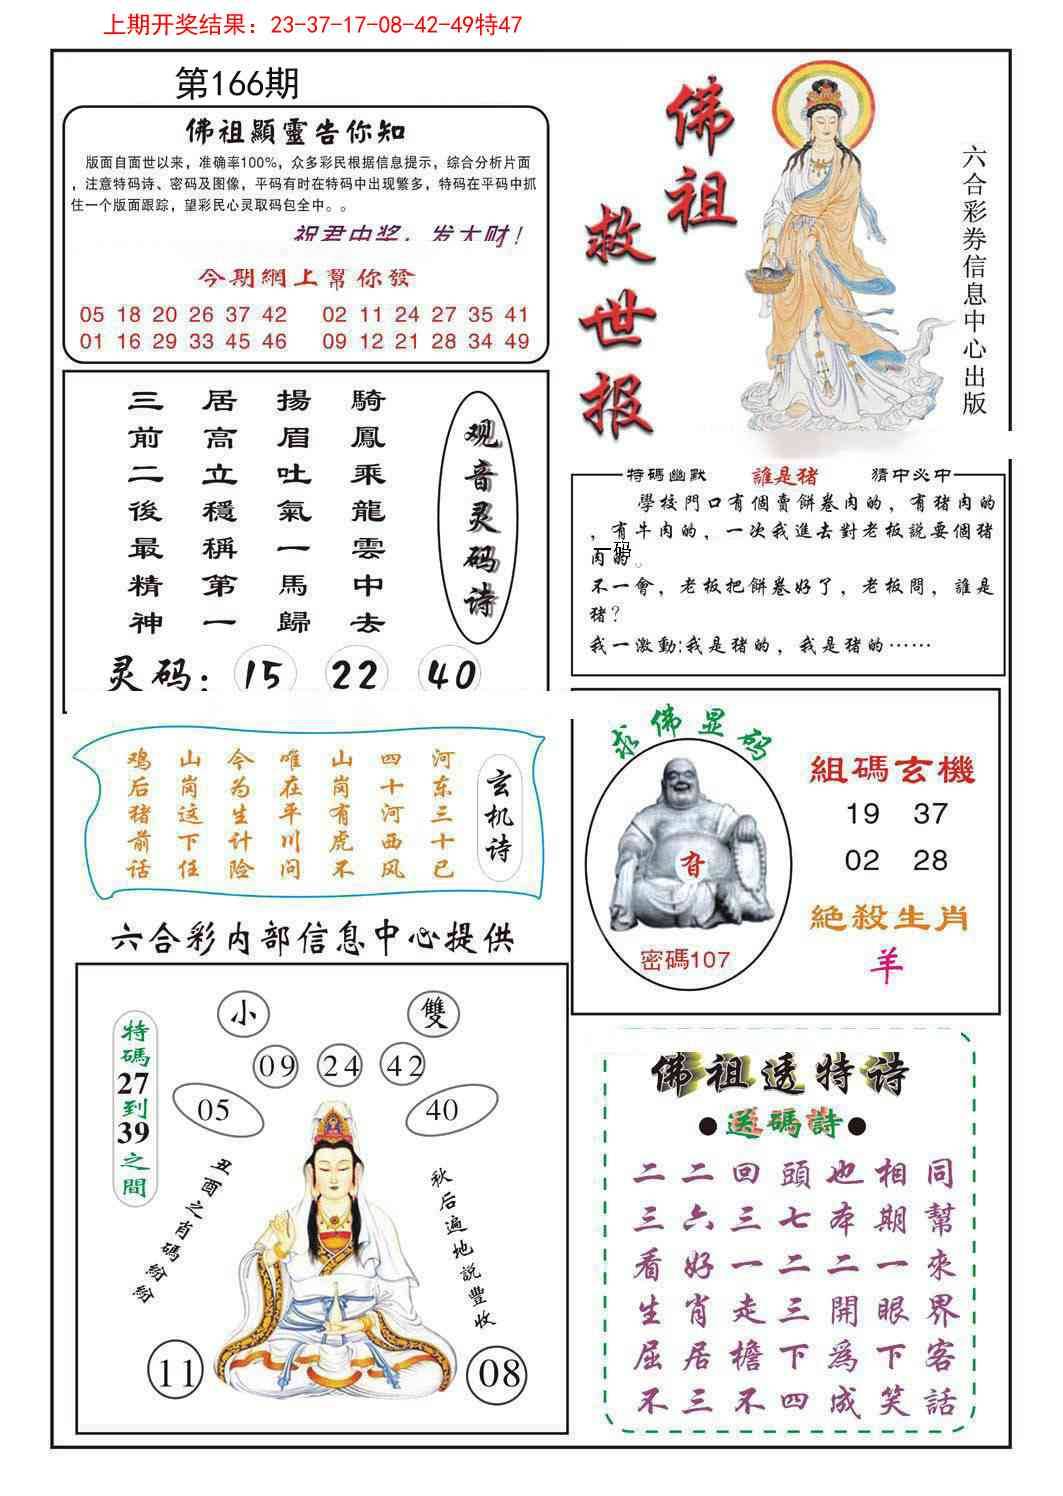 上期开奖结果：23-37-17-08-42-49特47
第166期
佛祖顯靈告你知
版面自面世以来，准确率100%，众多彩民根据信息提示，综合分析片面
，注意特码诗、密码及图像，平码有时在特码中出现繁多，特码在平码中抓
住一个版面跟踪，望彩民心灵取码包全中。。
祝君中奖，发大财！
今期網上幫你發
05 18 20 26 37 42 02 11 24 27 35 41
01 16 29 33 45 46 09 12 21 28 34 49
佛祖
救世报
六合彩券信息中心出版
騎鳳乘龍雲中去
揚眉吐氣一馬歸
居高立穩稱第一
三前二後最精神
观音灵码诗
灵码：15 22 40
特碼幽默 誰是猪 猜中必中
學校門口有個賣餅卷肉的，有猪肉的
，有牛肉的，一次我進去對老板説要個猪
肉的
一码
不一會，老板把餅卷好了，老板問，誰是
猪？
我一激動:我是猪的，我是猪的……
玄机诗
河东三十已
四十河西风
山岗有虎不
唯在平川问
今为生计险
山岗这下任
鸡后猪前话
求佛显码
密碼107
組碼玄機
19 37
02 28
絕殺生肖
羊
六合彩内部信息中心提供
特碼27到39之間
小 雙
09 24 42
05 40
丑酉之肖碼紛紛
秋后遍地説豐收
11 08
佛祖透特诗
●送碼詩●
二二回頭也相同
三六三七本期幫
看好一二二一來
生肖走三開眼界
屈居檐下爲下客
不三不四成笑話